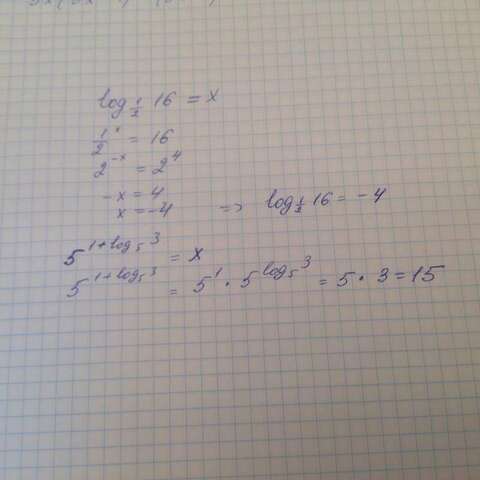 log 1/2 16 = x
1/2 ^x = 16
2^-x = 2^4
-x = 4
x = -4 => log 1/2 16 = -4
5^1+log5 3 = x
5^1+log5 3 = 5^1 · 5^log5 3 = 5 · 3 = 15